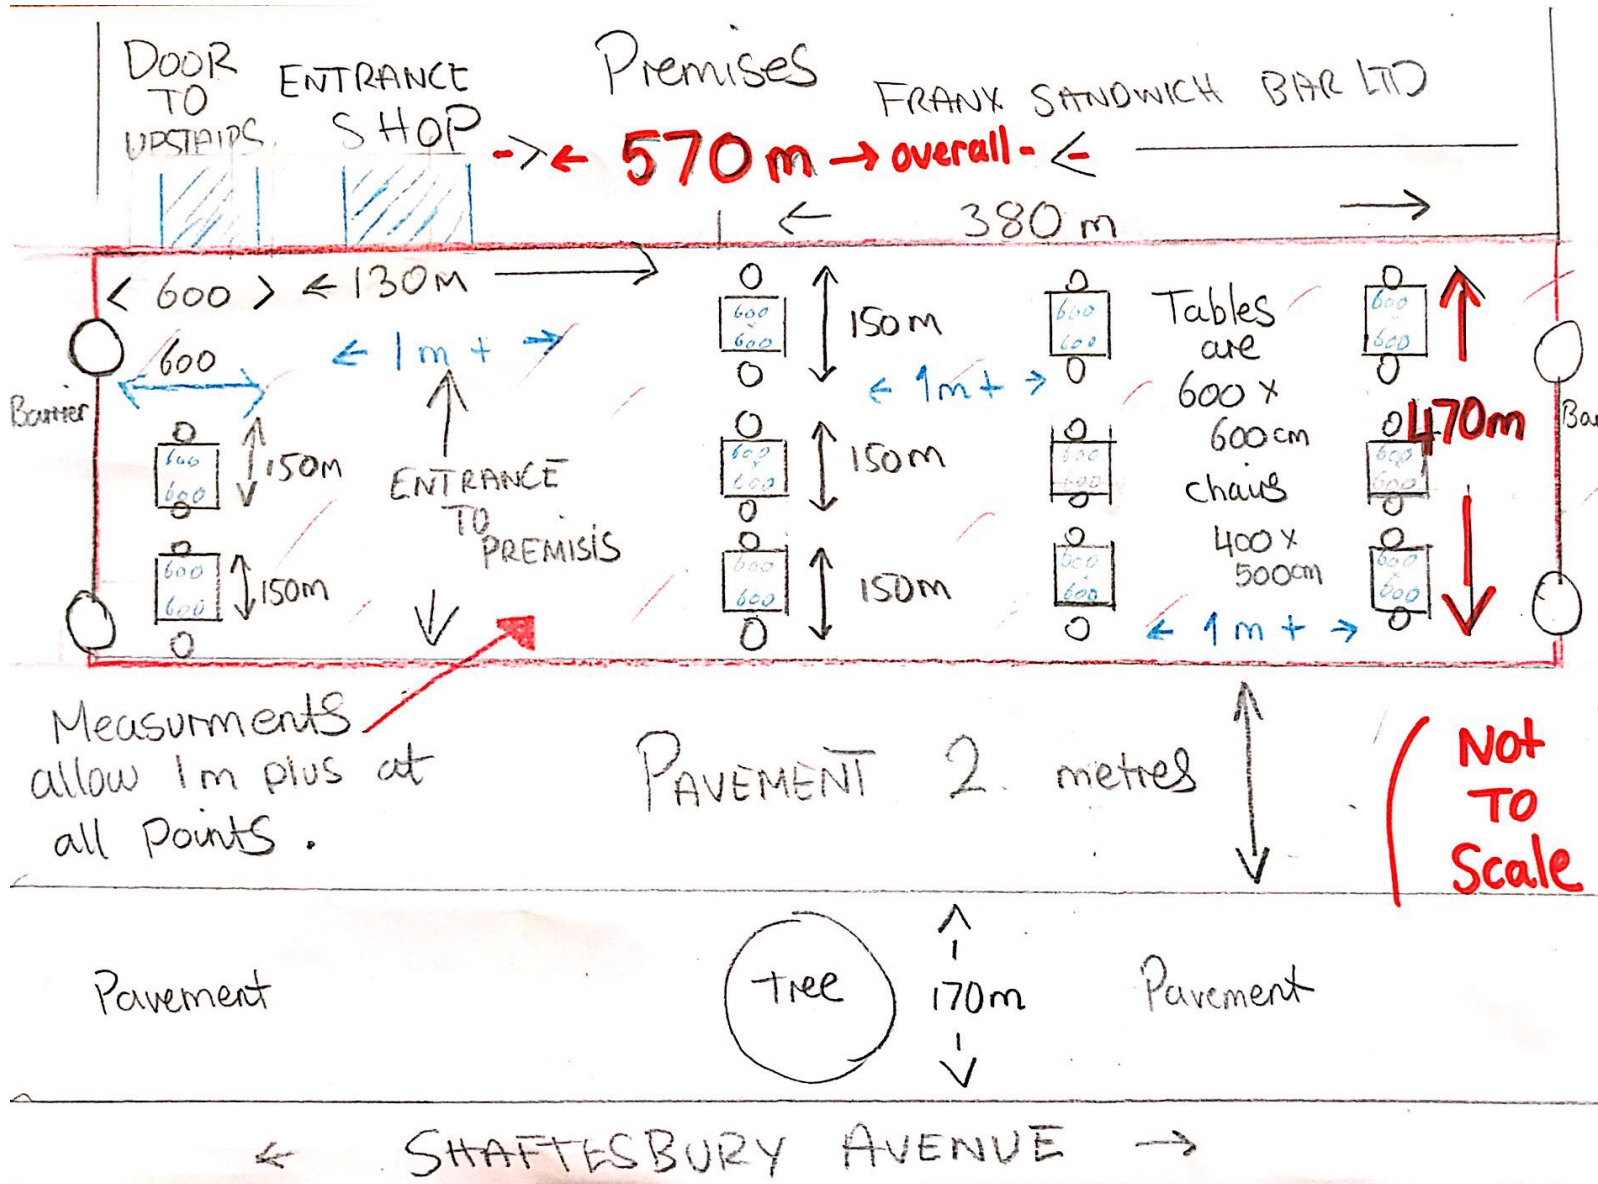 DOOR
TO
UPSTAIRS.
ENTRANCE
SHOP
Premises
FRANX SANDWICH BAR LTD
570m overall
380m
600
130M
600
1m +
Barrier
150m
150m
ENTRANCE
TO
PREMISIS
600
600
600
600
600
x
600
150m
600
x
600
150m
600
600
150m
1m+
600
600
600
600
600
600
Tables
are
600 x
600cm
chairs
400 x
500cm
1m +
600
600
600
600
600
600
470m
Bar
Measurments
allow 1m plus at
all points.
PAVEMENT 2. metres
Not
To
Scale
Pavement
Tree
170m
Pavement
SHAFTESBURY AVENUE